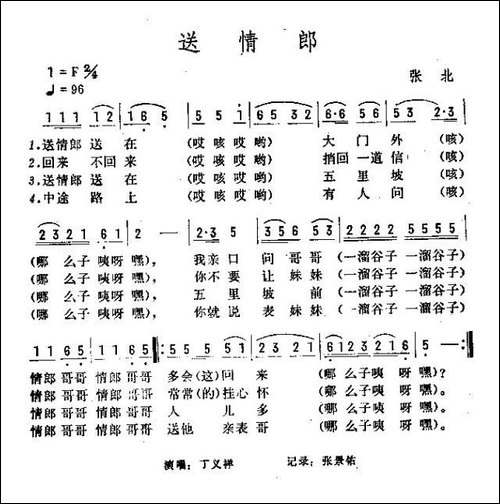 送情郎
1=F 2/4
♩=96
张 北
111 12 16· 5 5 5 1 65 32 1·235 2· 53 2·3
1.送情郎 送 在 (哎 咳 哎 哟) 大 门 外 (咳)
2.回来 不回 来 (哎 咳 哎 哟) 捎回 一道 信 (咳)
3.送情郎 送 在 (哎 咳 哎 哟) 五 里 坡 (咳)
4.中途 路 上 (哎 咳 哎 哟) 有 人 问 (咳)
(哪 么 子 咦 呀 嘿), 我亲 口 问 哥 哥 (一溜谷子 一溜谷子)
(哪 么 子 咦 呀 嘿), 你不 要 让 妹 妹 (一溜谷子 一溜谷子)
(哪 么 子 咦 呀 嘿), 五 里 坡 前 (一溜谷子 一溜谷子)
(哪 么 子 咦 呀 嘿), 你就 说 表 妹 妹 (一溜谷子 一溜谷子)
1 1 65 1 1 65
情郎 哥哥 情郎 哥哥 多会 (这) 回 来 (哪 么子咦 呀 嘿)?
情郎 哥哥 情郎 哥哥 常常 (的) 挂心 怀 (哪 么子咦 呀 嘿)。
情郎 哥哥 情郎 哥哥 人 儿 多 (哪 么子咦 呀 嘿)。
情郎 哥哥 情郎 哥哥 送他 亲表 哥 (哪 么子咦 呀 嘿)。
演唱:丁义祥 记录:张景佑